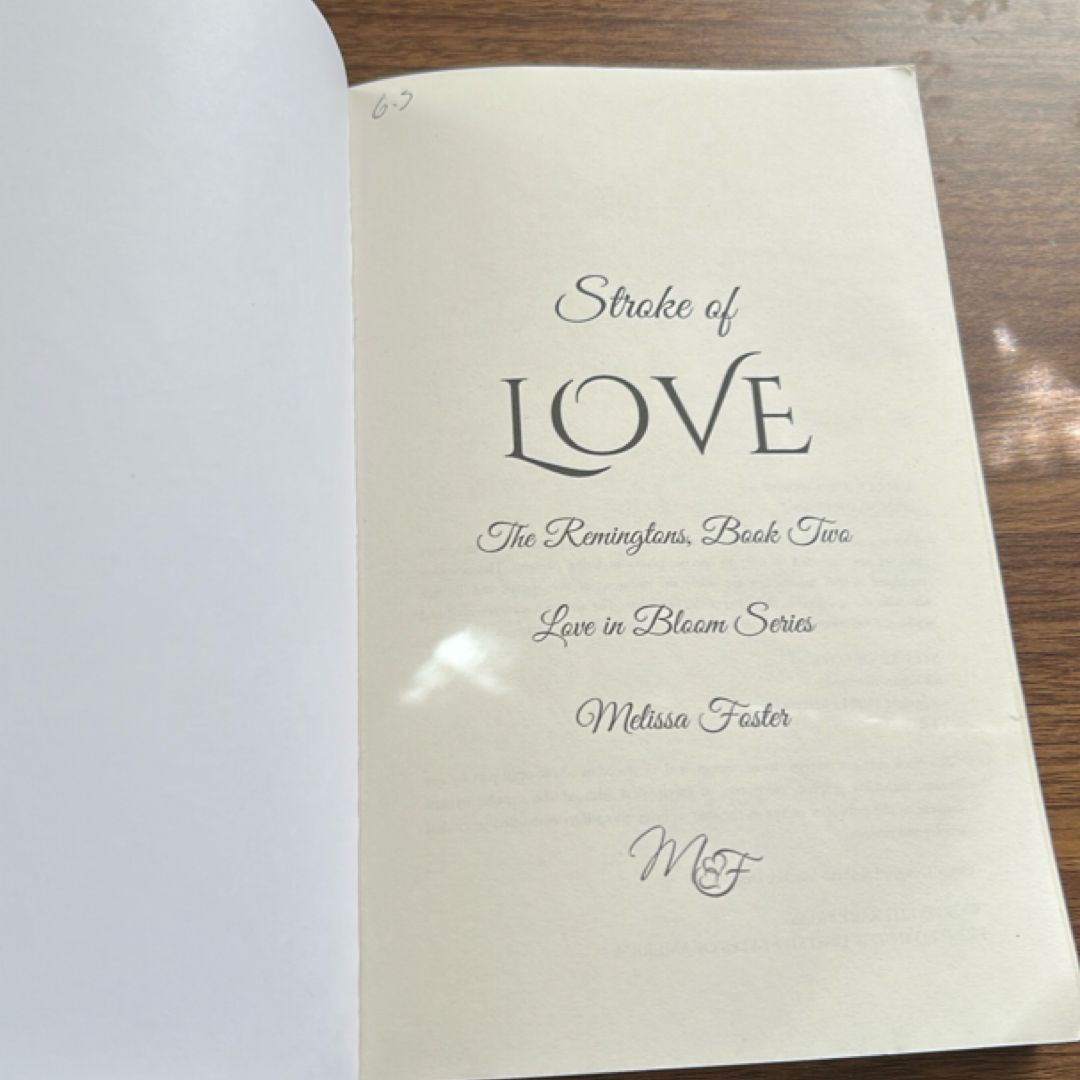 6-5
Stroke of
LOVE
The Remingtons, Book Two
Love in Bloom Series
Melissa Foster
M F